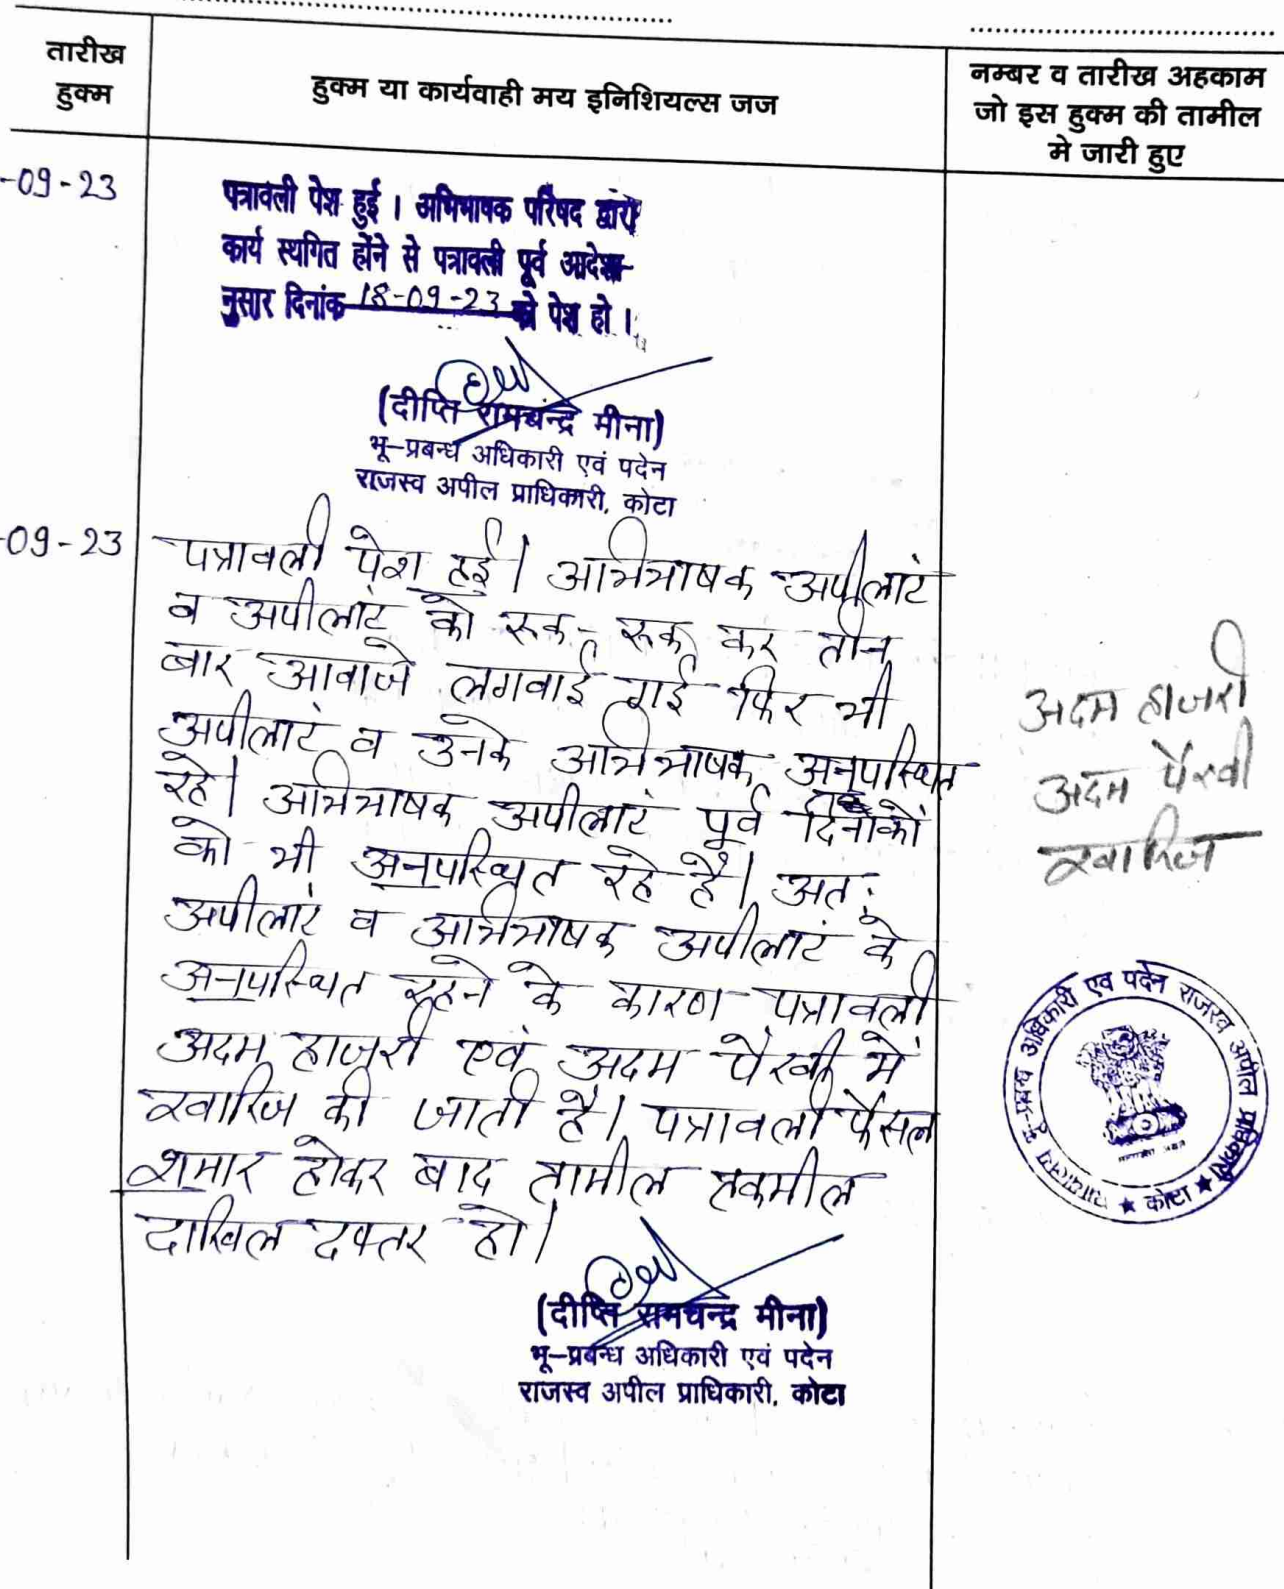 तारीख
हुक्म
हुक्म या कार्यवाही मय इनिशियल्स जज
नम्बर व तारीख अहकाम
जो इस हुक्म की तामील
मे जारी हुए
-09-23
पत्रावली पेश हुई । अभिभाषक परिषद द्वारा
कार्य स्थगित होने से पत्रावली पूर्व आदेशा-
नुसार दिनांक 18-09-23 को पेश हो ।
(दीप्ति रामचन्द्र मीना)
भू-प्रबन्ध अधिकारी एवं पदेन
राजस्व अपील प्राधिकारी, कोटा
-09-23
पत्रावली पेश हुई। अभिभाषक अपीलांट
व अपीलांट को रूक-रूक कर तीन
बार आवाजे लगवाई गई फिर भी
अपीलांट व उनके अभिभाषक अनुपस्थित
रहे। अभिभाषक अपीलांट पूर्व दिनांकों
को भी अनुपस्थित रहे है। अतः
अपीलांट व अभिभाषक अपीलांट के
अनुपस्थित रहने के कारण पत्रावली
अदम हाजरी एवं अदम पैरवी में
खारिज की जाती है। पत्रावली फैसल
शुमार होकर बाद तामील तकमील
दाखिल दफ्तर हो।
(दीप्ति रामचन्द्र मीना)
भू-प्रबन्ध अधिकारी एवं पदेन
राजस्व अपील प्राधिकारी, कोटा
अदम हाजरी
अदम पैरवी
खारिज
न्यायालय भू-प्रबन्ध अधिकारी एव पदेन राजस्व अपील प्राधिकारी ★ कोटा ★